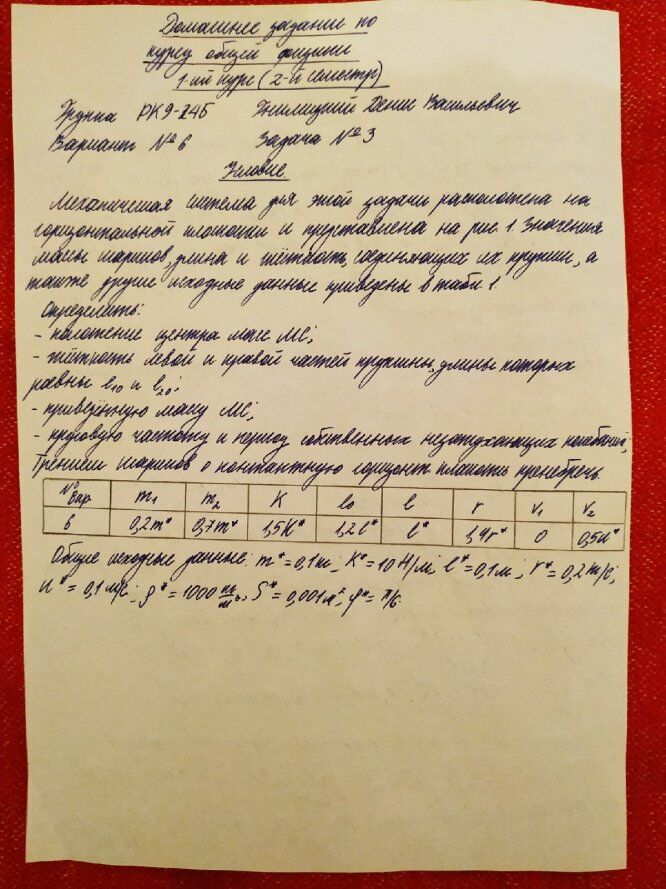 Домашнее задание по
курсу общей физики
1-ый курс (2-й семестр)
Группа РК9-24Б Гнилицкий Денис Васильевич
Вариант №6 Задача №3
Условие.
Механическая система для этой задачи расположена на
горизонтальной плоскости и представлена на рис. 1 Значения
массы шариков, длина и жёсткость, соединяющих их пружин, а
также другие исходные данные приведены в табл 1
Определить:
- положение центра масс МС;
- жёсткость левой и правой частей пружины, длины которых
равны l10 и l20;
- приведённую массу МС;
- круговую частоту и период собственных незатухающих колебаний;
Трением шариков о контактную горизонт. плоскость пренебречь.
№ вар. m1 m2 K l0 l r v1 v2
6 0,2m* 0,7m* 1,5K* 1,2l* l* 1,4r* 0 0,5u*
Общие исходные данные: m* = 0,1 кг; K* = 10 Н/м; l* = 0,1 м; r* = 0,2 кг/с;
u* = 0,1 м/с; ρ* = 1000 кг/м³; S* = 0,001 м²; φ* = π/6.